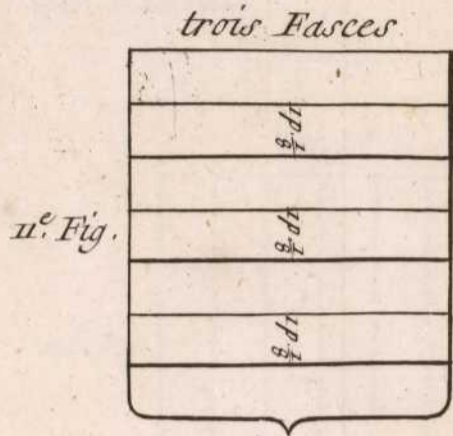 trois Fasces
11.e Fig.
1 p 1/8
1 p 1/8
1 p 1/8